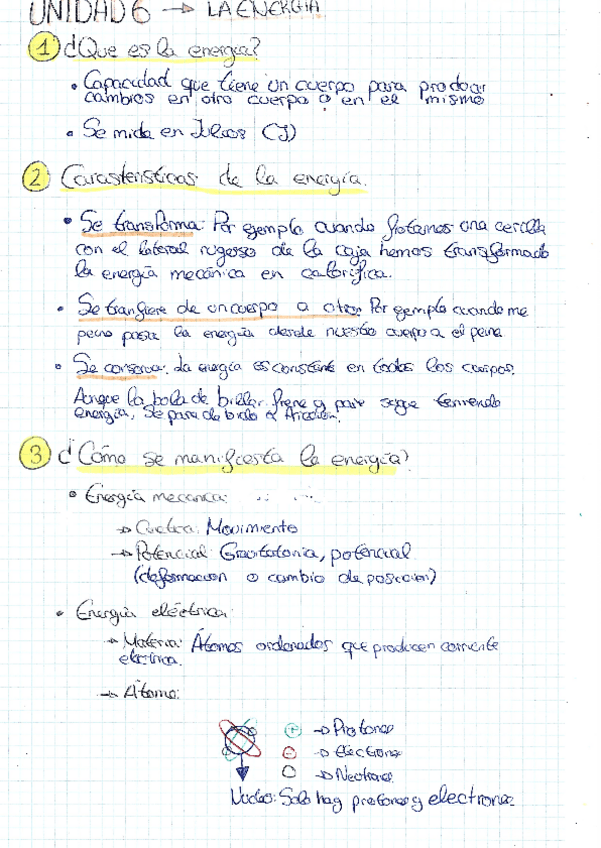 UNIDAD 6 → LA ENERGIA
1 ¿Que es la energia?
• Capacidad que tiene un cuerpo para producir
cambios en otro cuerpo o en el mismo
• Se mida en Julios (J)
2 Caracteristicas de la energía.
• Se transforma: Por ejemplo cuando frotamos una cerilla
con el lateral rugoso de la caja hemos transformado
la energía mecánica en calorifica.
• Se tranfiere de un cuerpo a otro: Por ejemplo cuando me
peino pasa la energia desde nuestro cuerpo a el peine.
• Se conserva: La energia es constante en todos los cuerpos.
Aunque la bola de billar frene y pare sigue teniendo
energia, se para de bido a
3 ¿Cómo se manifiesta la energía?
• Energía mecanica:
→ Cinetica: Movimiento
→ Potencial: Gravitatoria, potencial
(deformacion o cambio de posicion)
• Energía eléctrica:
→ Materia: Átomos ordenados que producen corriente
electrica.
→ Átomo:
+ → Protones
- → Electrones
→ Neutrones
Nucleo: Solo hay protones y electrones